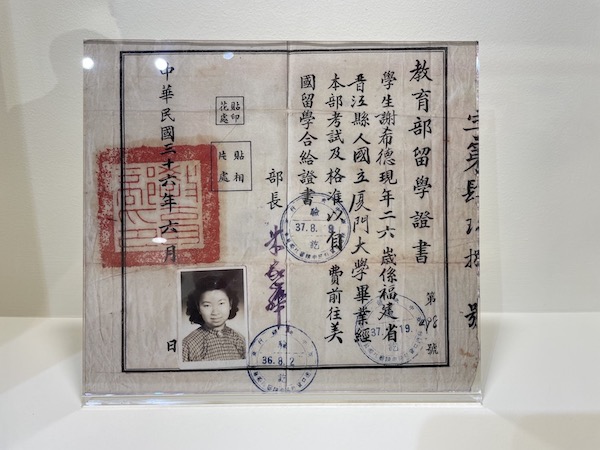 字第肆
號
教育部留學證書
第
號
學生謝希德現年二六歲係福建省
晋江縣人國立厦門大學畢業經
本部考試及格准以自費前往美
國留學合給證書
部長 朱家驊
貼印
花處
貼相
片處
中華民國三十六年六月 日
驗
37.8.9
訖
37.
19
訖
36.8.2
訖